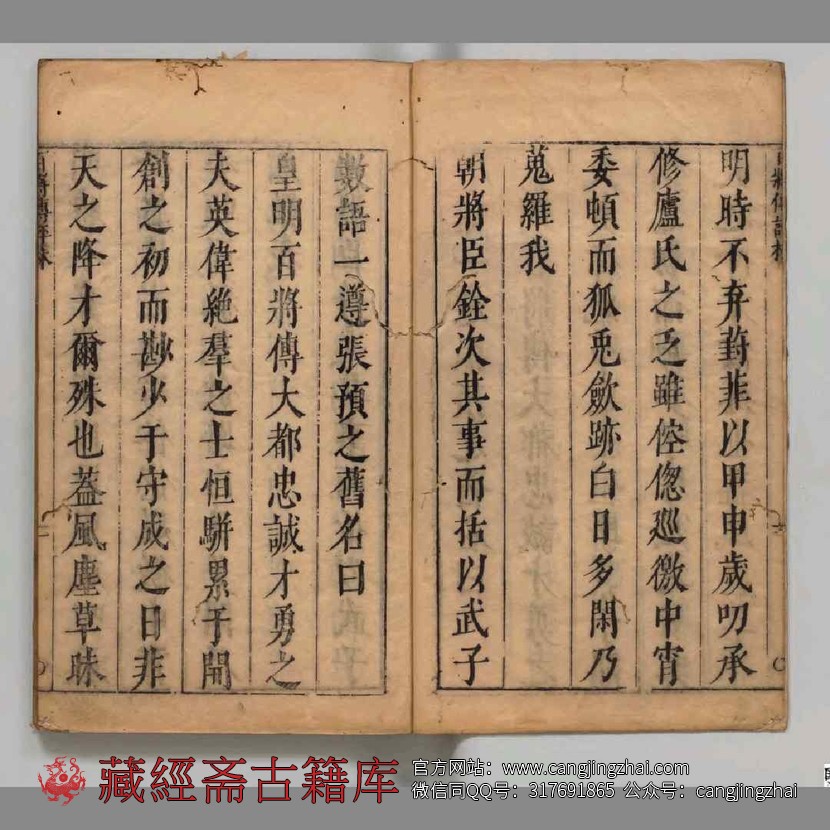 明時不弃葑菲以甲申歲叨承
修廬氏之乏雖倥偬廵徼中宵
委頓而狐兎歛跡白日多閑乃
蒐羅我
朝將臣銓次其事而括以武子
數語一遵張預之舊名曰
皇明百將傳大都忠誠才勇之
夫英偉絶羣之士恒駢累于開
創之初而尠少于守成之日非
天之降才爾殊也葢風塵草昧
藏經斋古籍库
官方网站：www.cangjingzhai.com
微信同QQ号：317691865 公众号：cangjingzhai